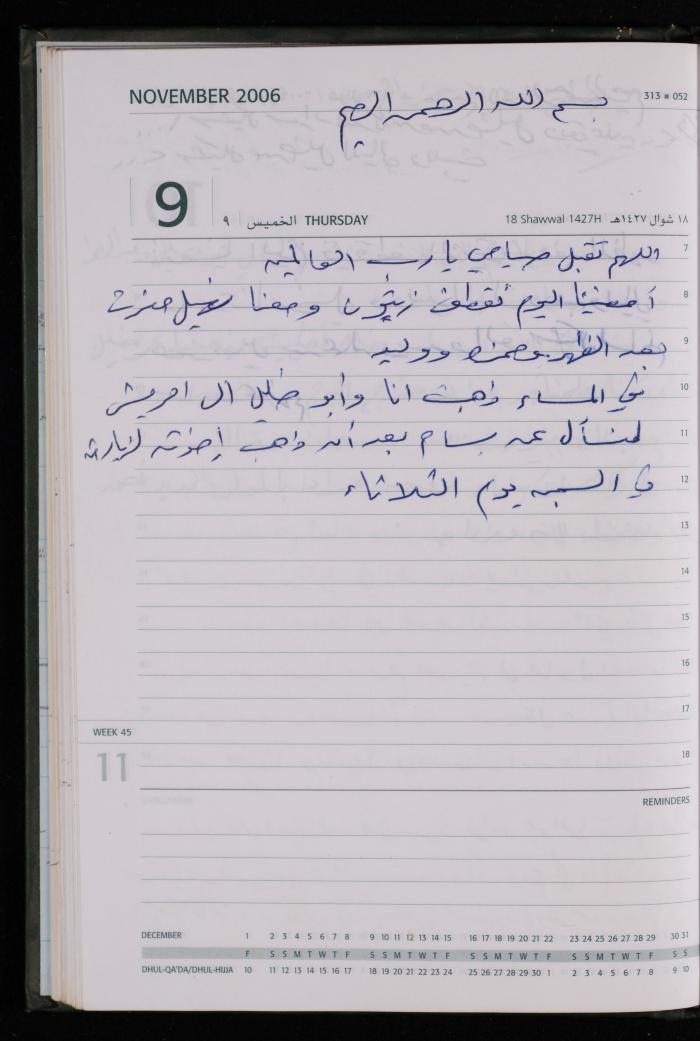 NOVEMBER 2006
313 ■ 052
بسم الله الرحمن الرحيم
9 ٩ الخميس THURSDAY 18 Shawwal 1427H ١٨ شوال ١٤٢٧هـ
7 اللهم تقبل صيامي يا رب العالمين
8 أمضينا اليوم نقطف زيتون ومعنا
9 بعد الظهر ووليد
10 في المساء ذهبت انا وأبو خليل ال
11 لنسأل عن بسام بعد أن ذهب إخوته لزيارته
12 في السجن يوم الثلاثاء
13
14
15
16
17
WEEK 45
18
11
REMINDERS
DECEMBER 1 2 3 4 5 6 7 8 9 10 11 12 13 14 15 16 17 18 19 20 21 22 23 24 25 26 27 28 29 30 31
F S S M T W T F S S M T W T F S S M T W T F S S M T W T F S S
DHUL-QA'DA/DHUL-HIJJA 10 11 12 13 14 15 16 17 18 19 20 21 22 23 24 25 26 27 28 29 30 1 2 3 4 5 6 7 8 9 10